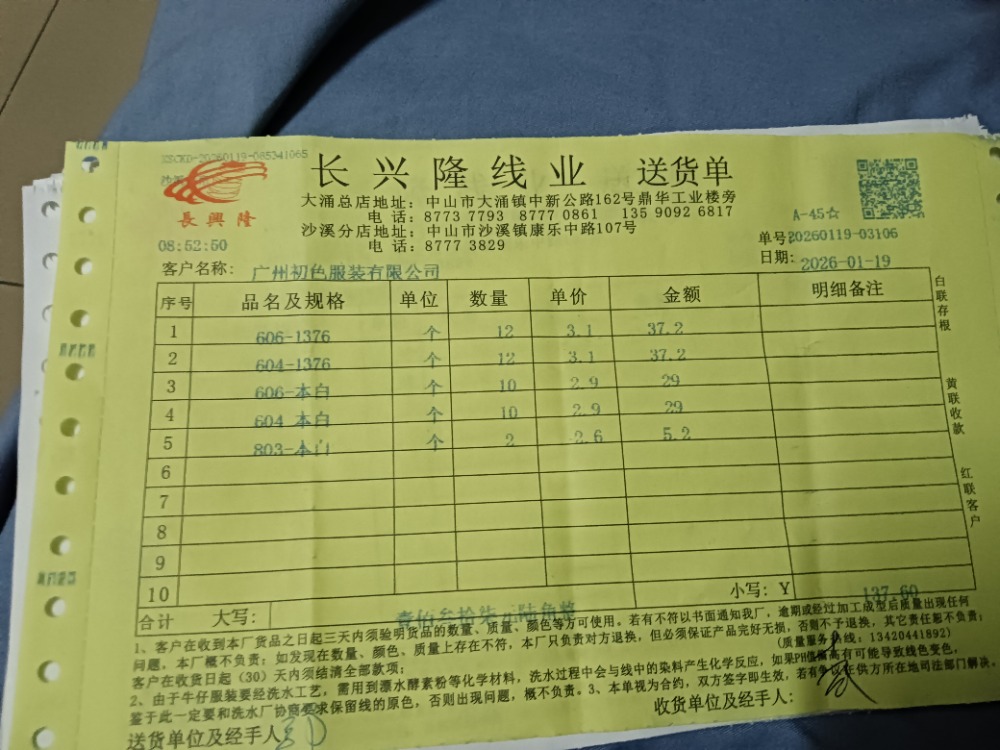 KSCKD-20260119-085341065
长兴隆线业 送货单
長興隆
大涌总店地址：中山市大涌镇中新公路162号鼎华工业楼旁
电 话：8773 7793 8777 0861 135 9092 6817
沙溪分店地址：中山市沙溪镇康乐中路107号
电 话：8777 3829
A-45☆
08:52:50
单号：20260119-03106
日期：2026-01-19
客户名称：广州初色服装有限公司
序号 品名及规格 单位 数量 单价 金额 明细备注
1 606-1376 个 12 3.1 37.2
2 604-1376 个 12 3.1 37.2
3 606-本白 个 10 2.9 29
4 604-本白 个 10 2.9 29
5 803-本白 个 2 2.6 5.2
6
7
8
9
10
合计 大写：壹佰叁拾柒元陆角整 小写：Y 137.60
白联存根
黄联收款
红联客户
1、客户在收到本厂货品之日起三天内须验明货品的数量、质量、颜色等方可使用。若有不符以书面通知我厂，逾期或经过加工成型后质量出现任何
问题，本厂概不负责；如发现在数量、颜色、质量上存在不符，本厂只负责对方退换，但必须保证产品完好无损，否则不予退换，其它责任恕不负责；
客户在收货日起（30）天内须结清全部款项； (质量服务热线：13420441892)
2、由于牛仔服装要经洗水工艺，需用到漂水酵素粉等化学材料，洗水过程中会与线中的染料产生化学反应，如果PH值偏高有可能导致线色变色，
鉴于此一定要和洗水厂协商要求保留线的原色，否则出现问题，概不负责。3、本单视为合约，双方签字即生效，若有争议在供方所在地司法部门解决。
送货单位及经手人： 收货单位及经手人：